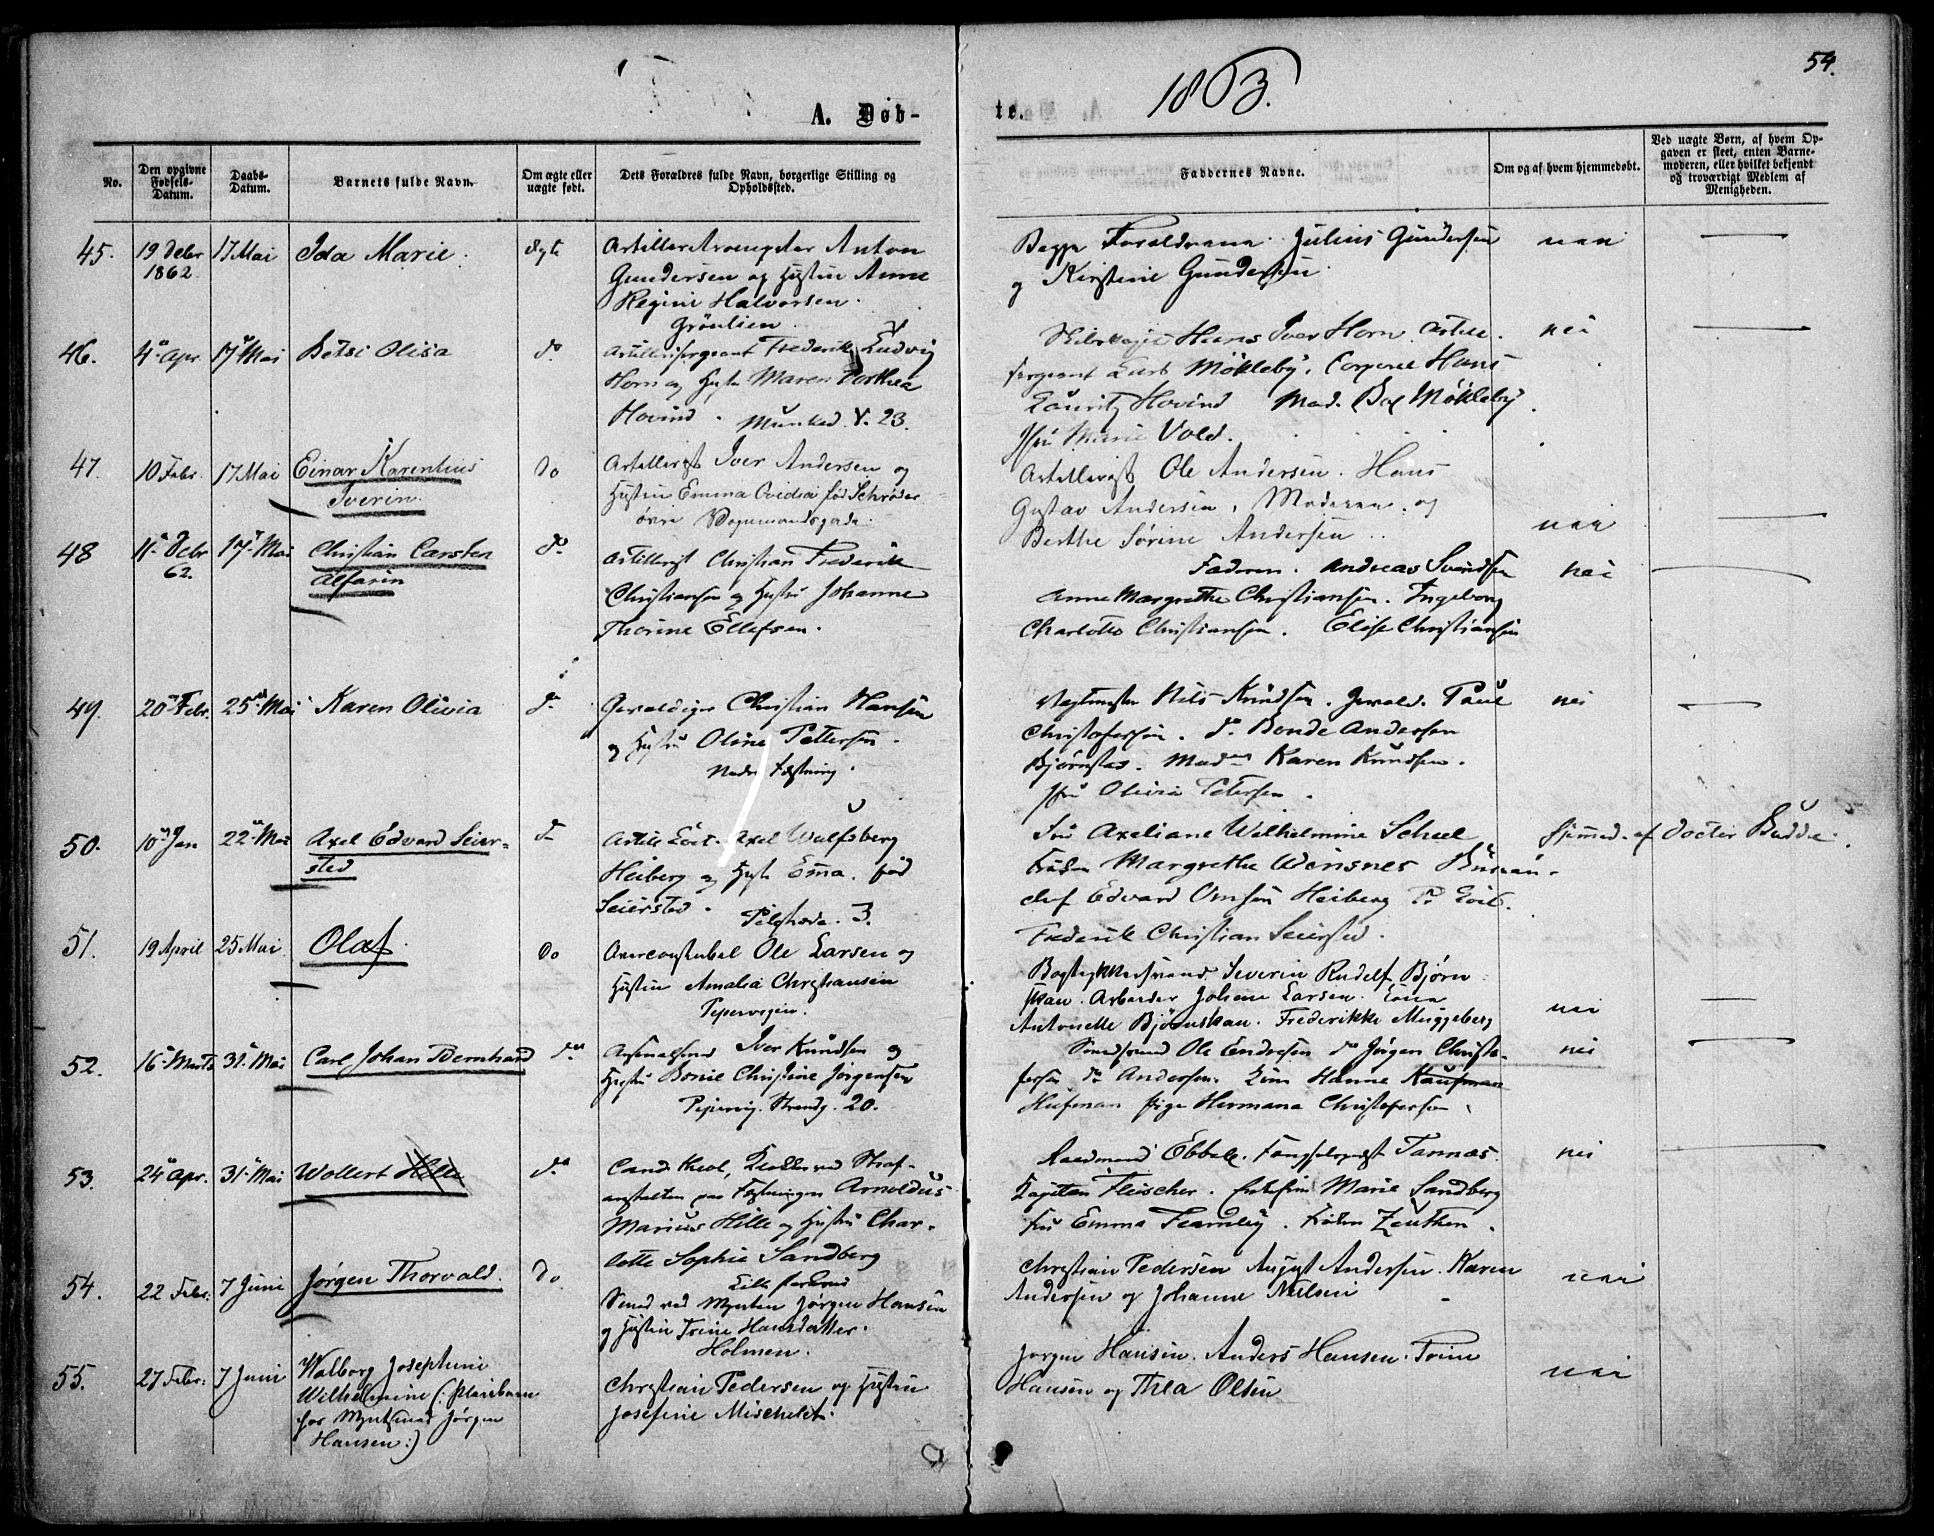 1863.
54.
A. Døb-
te.
No.
Den opgivne Fødsels-Datum.
Daabs-Datum.
Barnets fulde Navn.
Om ægte eller uægte født.
Dets Forældres fulde Navn, borgerlige Stilling og Opholdssted.
Faddernes Navne.
Om og af hvem hjemmedøbt.
Ved uægte Børn, af hvem Opgaven er skeet, enten Barnemoderen, eller hvilket bekjendt og troværdigt Medlem af Menigheden.
45. 19 Debr 1862 17 Mai Ida Marie. Ægte
Anton
Gundersen og Hustru Anne
Regine Halvorsen.
Grønlien.
Begge Forældrene. Julius Gundersen nei
og Kirstine Gundersen.
46. 4 Apr. 17 Mai Betsi Olisa do
Artillerisergeant Frederik Ludvig
Horn og Hustr Maren Dorthea
Hovind. Munked. V. 23.
Hans Iver Horn. nei
sergeant Mökleby. Corporel Hans
Lauritz Hovind Mad. Mökleby
Jfru Marie Vold.
47. 10 Febr. 17 Mai Einar Karentius
Iverin. do
Artillerist Iver Andersen og
Hustru Emma Ovidia fød Schrøder
Artillerist Ole Andersen. Hans
Gustav Andersen, Moderen. og
Berthe Sørine Andersen. nei
48 11 Debr 62. 17 Mai Christian Carsten
Alfarin do
Artillerist Christian Frederik
Christiansen og Hustru Johanne
Thorine Ellefsen.
Faderen. Andreas Svendsen nei
Anne Margrethe Christiansen. Ingeborg
Charlotte Christiansen. Elise Christiansen
49. 20 Febr. 25 Mai Karen Olivia do
Gevaldiger Christian Hansen
og Hustru Oline Pettersen.
Nedre Fæstning.
Vagtmester Nils Knudsen. Gevald. Paul nei
Christofersen. do Bonde Andersen
Bjørnstad. Mad Karen Knudsen.
Jfru Olivia Petersen.
50. 10 Jan 22 Mai Axel Edvard Seier-
sted do
Axel Wulfsberg
Heiberg og Hustr Ema. fød
Seiersted. 3.
Fru Axeliane Wilhelmine Scheel hjemmed. af Doctor Budde.
Frøken Margrethe Wensnes Büreau-
chef Edvard Omsen Heiberg Pr
Frederik Christian Seiersted.
51. 19 April 25 Mai Olaf do
Ole Larsen og
Hustru Amalia Christiansen
Pipervigen.
Severin Rudolf Bjørn
skau. Arbeider Johan Larsen.
Antonette Bjørnskau. Frederikke Muggeberg nei
52. 16 Marts 31 Mai Carl Johan Bernhard do
Arsenalsmd Iver Knudsen og
Hustru Bonie Christine Jørgensen
Pipervig. Strandg. 20.
Ole Endresen do Jørgen Christo- nei
fersen do Andersen. Hanne Kaufman
Hufman pige Hermana Christofersen
53. 24 Apr. 31 Mai Wollert Hille do
Cand. theol, ved Straf-
anstalten paa Fæstningen Arnoldus
Marius Hille og Hustru Char-
lotte Sophie Sandberg
Raadmand Ebbell. Tannæs. nei
Kapitain Fleischer. Marie Sandberg
Fru Emma Fearnley. Frøken Zeuthen.
54. 22 Febr. 7 Juni Jørgen Thorvald. do
Smed ved Mynten Jørgen Hansen
og Hustru Trine Hansdatter.
Holmen.
Christian Pedersen August Andersen. Karen nei
Andersen og Johanne Nielsen
55. 27 Febr. 7 Juni Walborg Josephine
Wilhelmine (: pleiebarn
hos Myntsmed Jørgen
Hansen:)
Christian Pedersen og Hustru
Josefine Mischelet.
Jørgen Hansen. Anders Hansen. Trine nei
Hansen og Thea Olsen